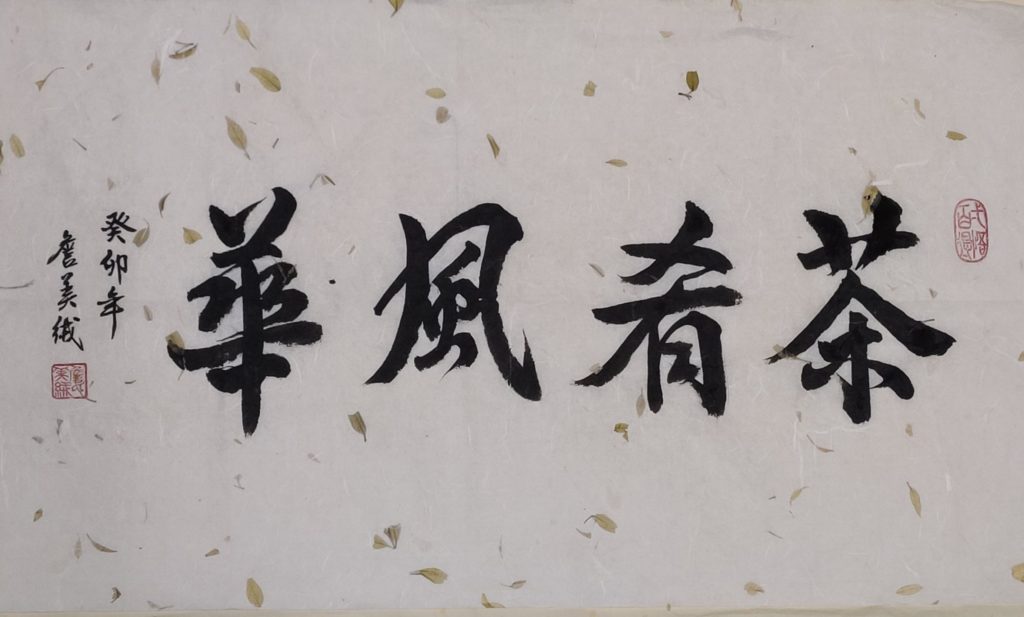 茶肴風華
癸卯年
詹美絨